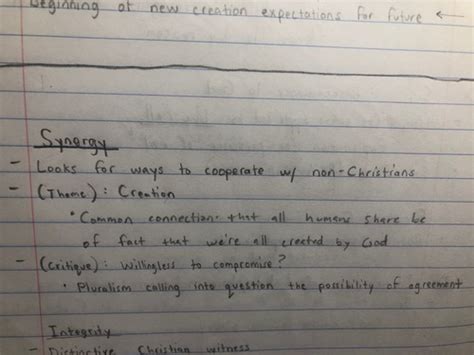 Beginning of new creation expectations for future ←
Synergy
- Looks for ways to cooperate w/ non-Christians
- (Theme): Creation
• Common connection that all humans share bc
of fact that we're all created by God
- (Critique): Willingless to compromise?
• Pluralism calling into question the possibility of agreement
Integrity
- Distinctive Christian witness